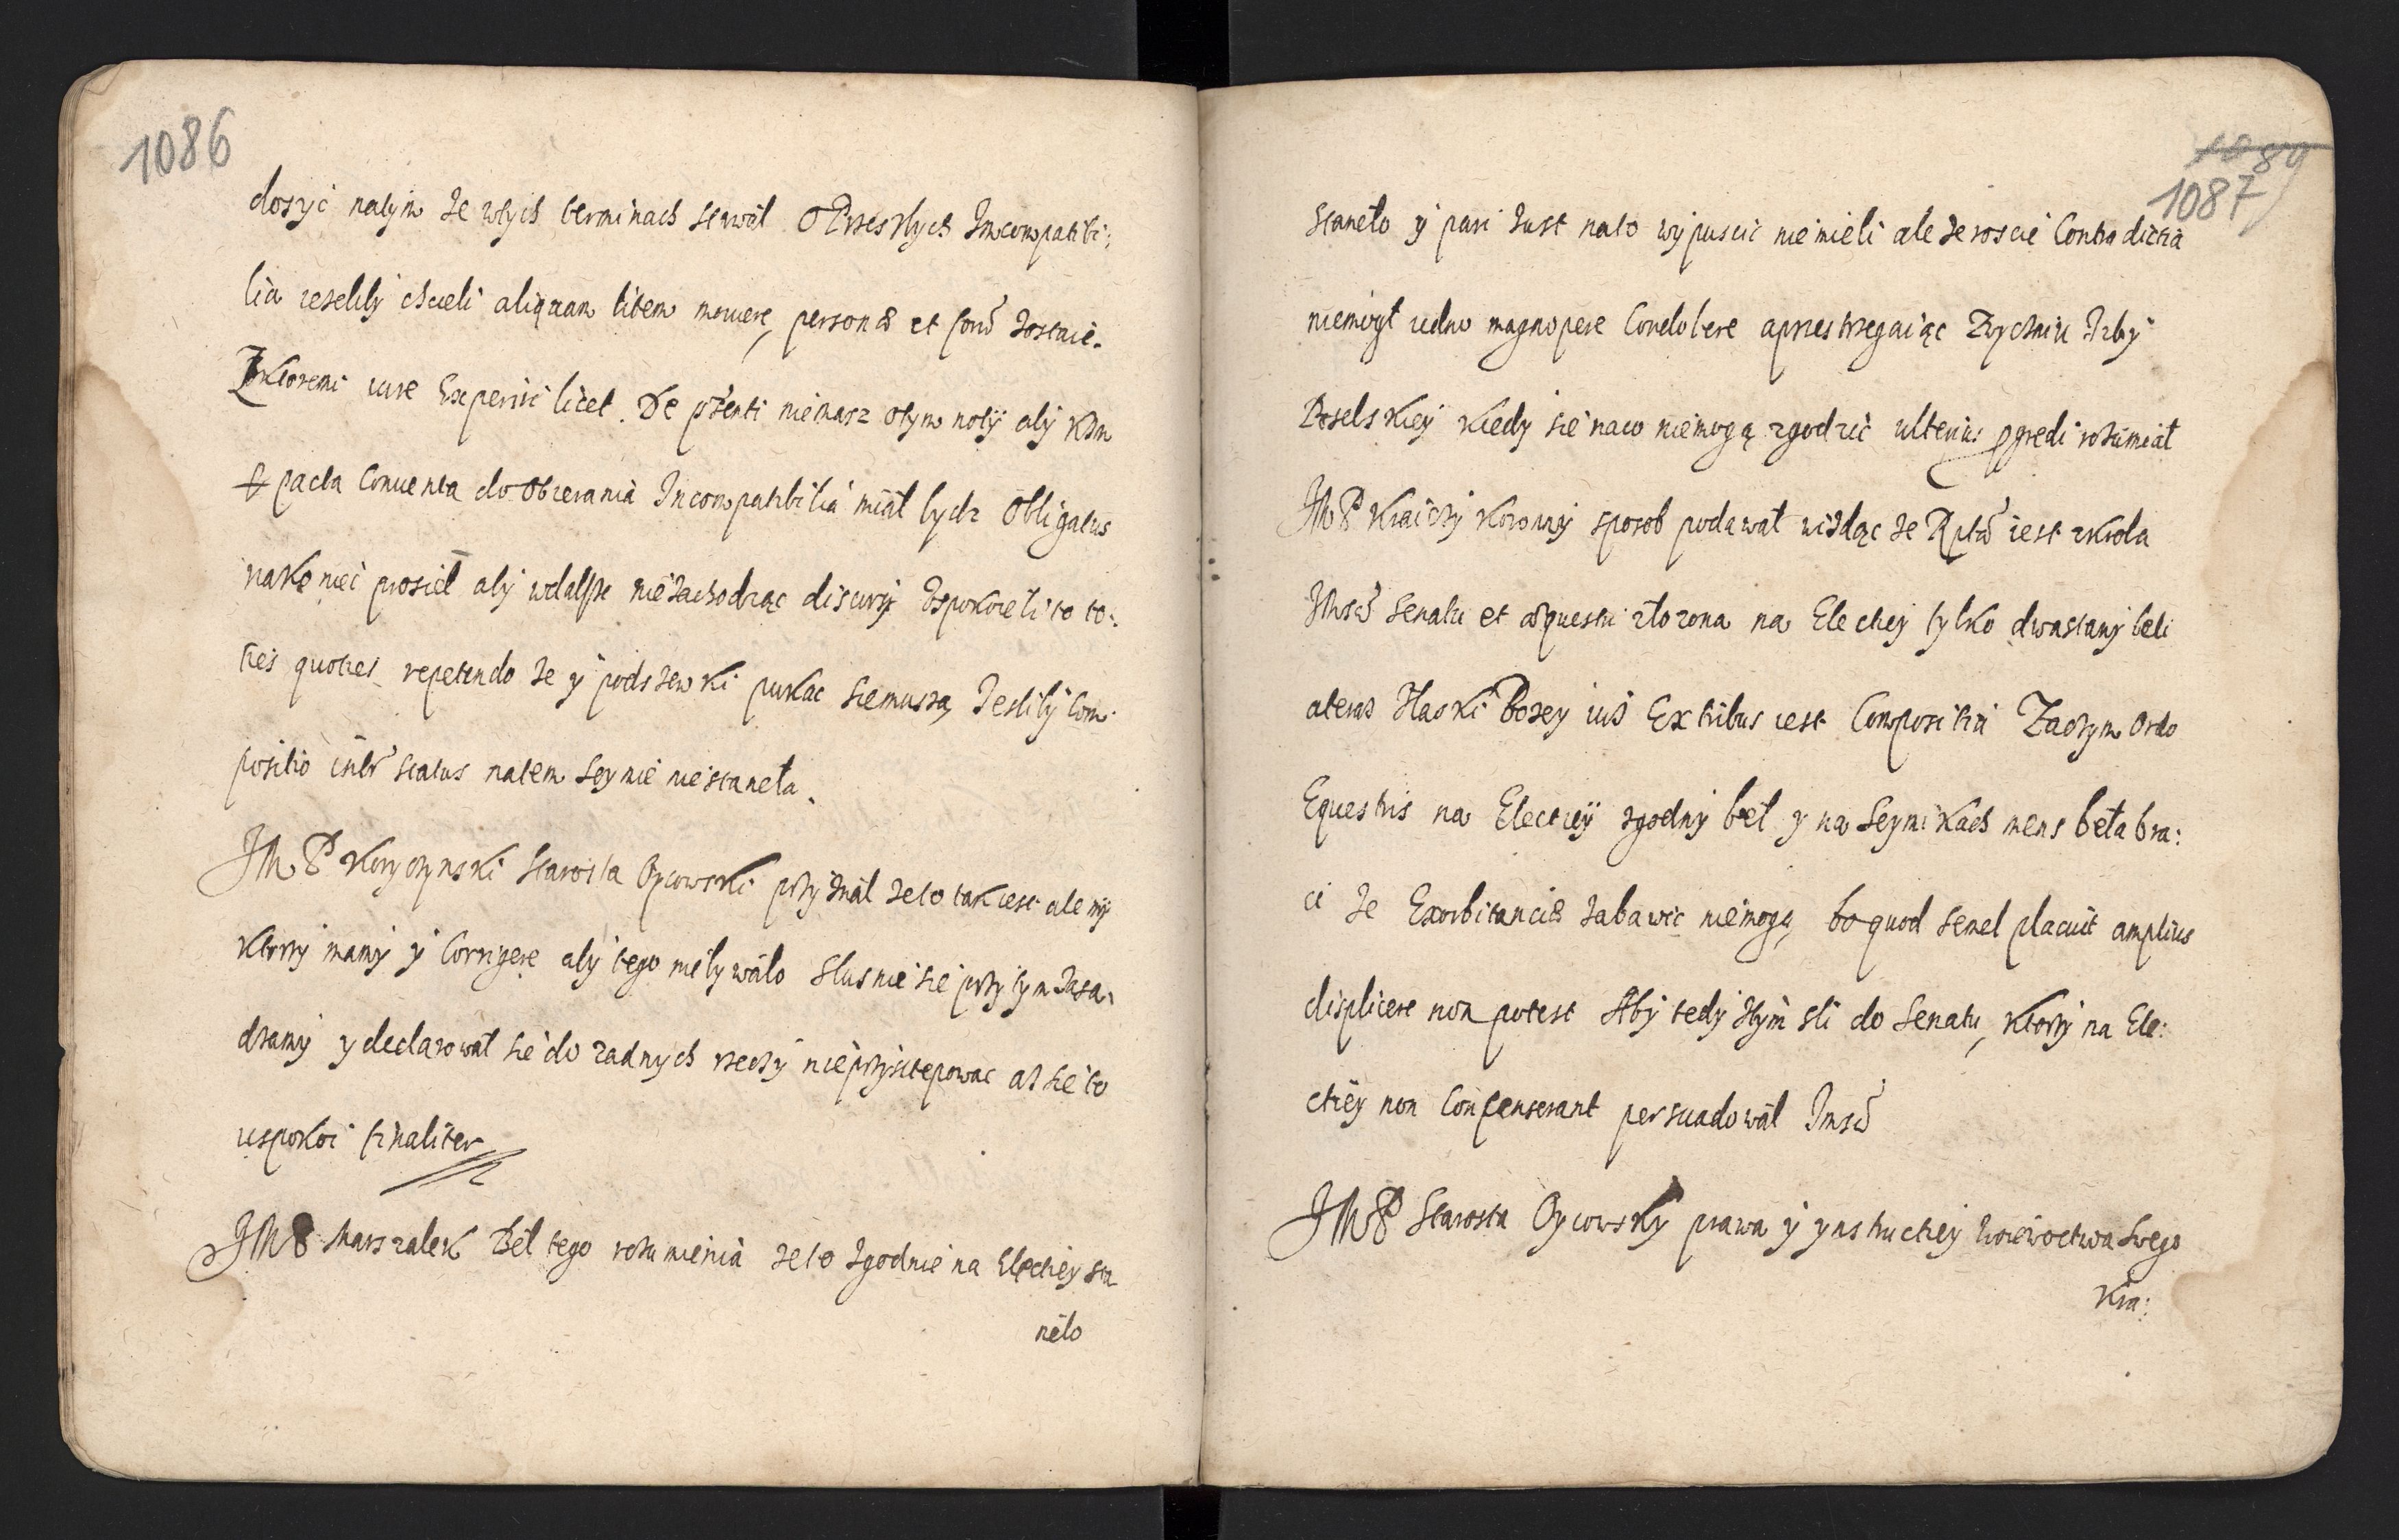 1086
dosyć natym że wtych terminach stawał O Przeszłych Incompatibi:
lia ieseliby chcieli aliquam litem mouere, personas et forũ zostaie.
Zktoremi iure Experiri licet. De pn̄senti niemasz otym notÿ aby KJm
pacta Conuenta do Obierania Incompatibilia miał bydz Obligatus
nakoniec prosieł aby wdalsze niezachodząc discursy Uspokoieli to to:
ties quoties repetendo że y podszewki pukac siemuszą, Jesliby Com:
positio inter status natem Seymie niestaneła.
JM P Koryczynski Starosta Oycowski przyznał zeto takiest ale my
ktorzy mamy y Corrigere aby tego niebywało Slusnie sie przy tym Zasa:
dzamy y declarował sie do zadnych rzeczy nieprzystepowac az sie to
uspokoi finaliter
JM P Marszalek Beł tego rozumienia zeto zgodnie na Elechiey sta
neło
1089
1087
staneło y pari zust nato wypuscic niemieli ale ze roscie Contradictia
niemogł iedno magnopere Condolere aprzestrzegaiąc Zwyczaiu Izby
Poselskiey kiedy sie naco niemogą zgodzic ulterius progredi rozumiał
JM P Kraiczy Koronny sposob podawał widząc ze Rptã iest zkrola
Jmsci Senatu et equestri złozona na Elechey tylko dwastany beli
ateraz Złaski Bozey iuż Ex tribus iest Compositia Zaczym Ordo
Equestris na Elecciÿ zgodny beł y na Seymikach mens beła bra:
ci ze Exorbitancias zabawic niemogą, bo quod semel placuit amplius
displicere non potest Aby tedy ztym sli do Senatu, ktorzy na Ele:
ctiey non Consenserant persuadował Jmsci
JM P Starosta Oycowsky prawa y ynstructiey Woiewoctwa Swego
Kra: